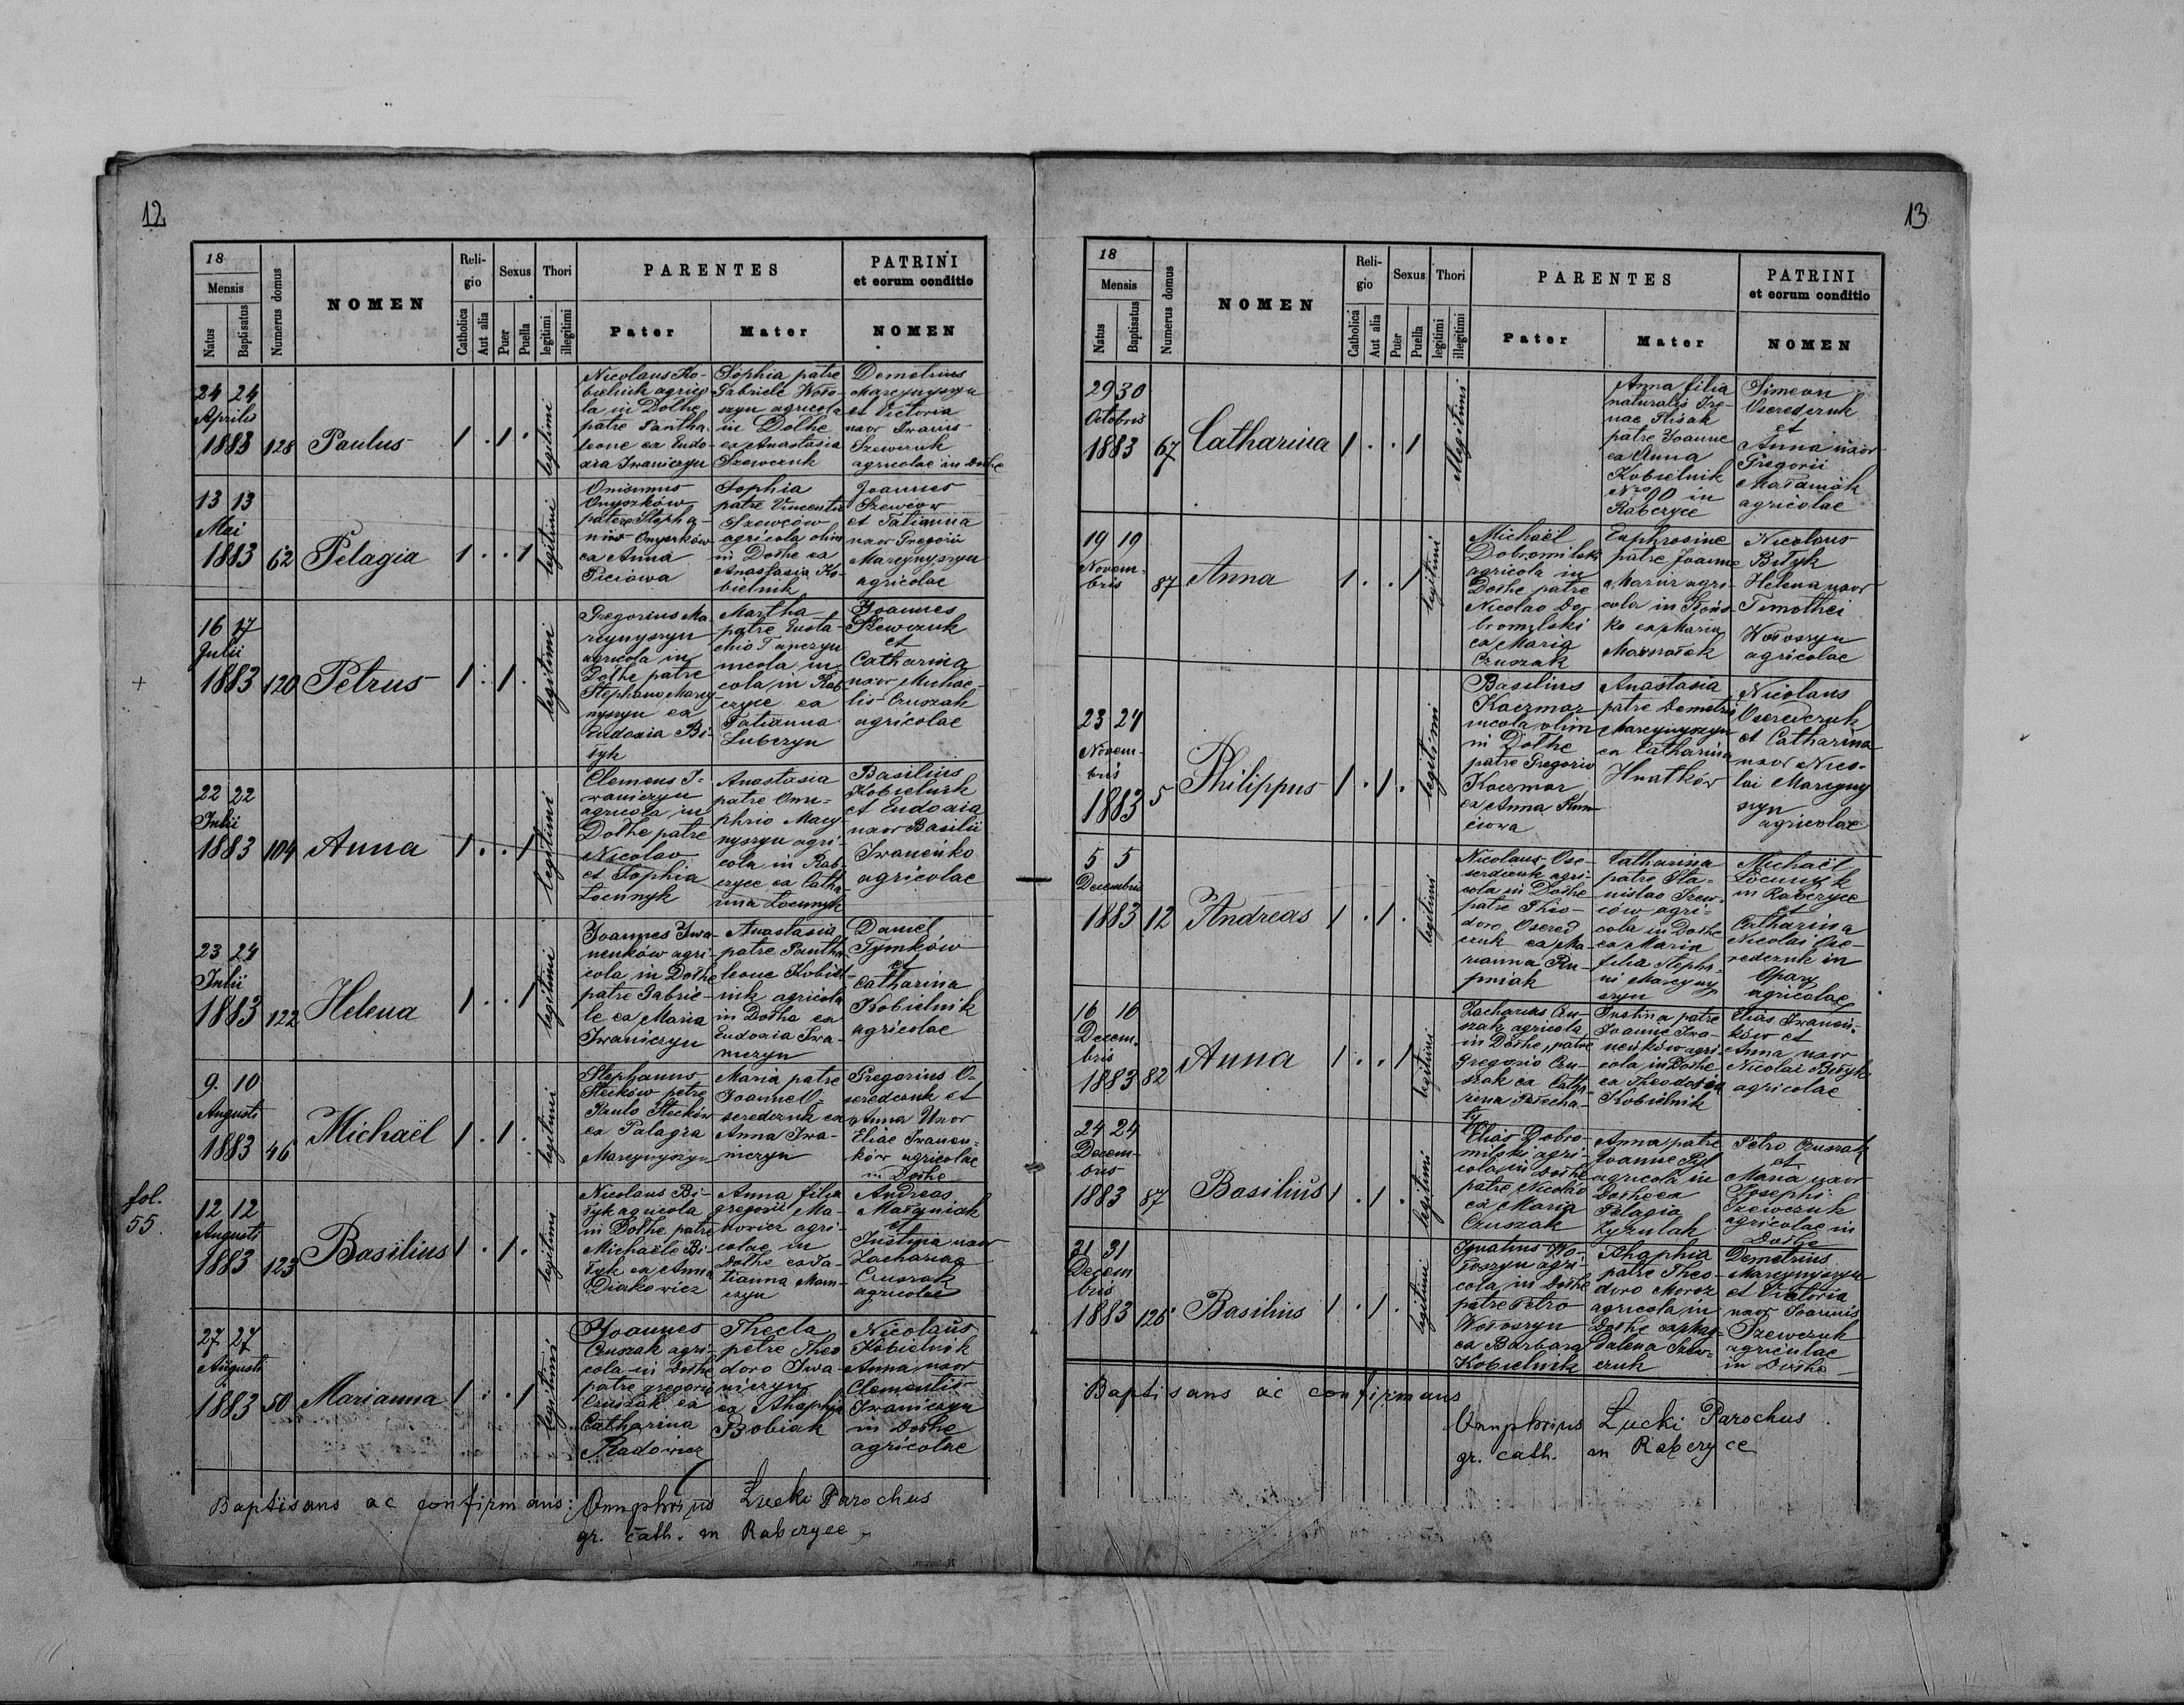 12
18
Mensis
Natus
Baptisatus
Numerus domus
NOMEN
Reli-
gio
Catholica
Aut alia
Sexus
Puer
Puella
Thori
legitimi
illegitimi
PARENTES
Pater
Mater
PATRINI
et eorum conditio
NOMEN
24 24
Aprilis
1883 128 Paulus 1 . 1 . legitimi
Nicolaus Ko-
bielnik agrico
la in Dołhe
patre Pantha-
leone ea Eudo-
xia Iwaniczyn
Sophia patre
Gabriele Woło-
szyn agricola
in Dołhe
ea Anastasia
Szewczuk
Demetrius
Marcynyszyn
et Victoria
uxor Ivanis
Szewczuk
agricolae in Dołhe
13 13
Mai
1883 62 Pelagia 1 . . 1 legitimi
Onisimus
Onyszków
patre Stepha-
no Onyszków
ea Anna
Piciowa
Sophia
patre Vincentio
Szewców
agricola olim
in Dołhe ea
Anastasia Ko-
bielnik
Joannes
Szewców
et Tatianna
uxor Gregorii
Marcynyszyn
agricolae
16 17
Julii
1883 120 Petrus 1 . 1 . legitimi
Gregorius Ma-
rcynyszyn
agricola in
Dołhe patre
Stephano Marcy-
nyszyn ea
Eudoxia Bi-
łyk
Martha
patre Eusta-
chio Tanczyn
incola in
cola in Rab-
czyce ea
Tatianna
Lubczyn
Joannes
Szewczuk
et
Catharina
uxor Michae-
lis Czuszak
agricolae
22 22
Julii
1883 104 Anna 1 . . 1 legitimi
Clemens I-
waniczyn
agricola in
Dołhe patre
Nicolao
et Sophia
Locunyk
Anastasia
patre Onu-
phrio Marcy-
nyszyn agri-
cola in Rab-
czyce ea Catha-
rina Locunyk
Basilius
Kobielnik
et Eudoxia
uxor Basilii
Iwaneńko
agricolae
23 24
Julii
1883 122 Helena 1 . . 1 legitimi
Joannes Iwa-
neńków agri-
cola in Dołhe
patre Gabrie-
le ea Maria
Iwaniczyn
Anastasia
patre Pantha-
leone Kobiel-
nik agricola
in Dołhe ea
Eudoxia Iwa-
niczyn
Daniel
Tymków
et
Catharina
Kobielnik
agricolae
9. 10
Augusti
1883 46 Michaël 1 . 1 . legitimi
Stephanus
Steców patre
Paulo Steców
ea Palagia
Marcynyszyn
Maria patre
Joanne O-
seredczuk ea
Anna Iwa-
niczyn
Gregorius O-
seredczuk et
Anna Uxor
Eliae Iwaneń-
ków agricolae
in Dołhe
fol.
55.
12 12
Augusti
1883 123 Basilius 1 . 1 . legitimi
Nicolaus Bi-
łyk agricola
in Dołhe patre
Michaële Bi-
łyk ea Anna
Diakowicz
Anna filia
gregorii Ma-
kowicz agri-
colae in
Dołhe ea Ta-
tianna Mam-
czyn
Andreas
Małaniak
et
Justyna uxor
Zachariae
Czuszak
agricolae
27 27
Augusti
1883 50 Marianna 1 . . 1 legitimi
Joannes
Czuszak agri-
cola in Dołhe
patre gregorio
Czuszak ea
Catharina
Radowicz
Thecla
patre Theo
doro Iwa-
niczyn
ea Ahaphia
Bobiak
Nicolaus
Kobielnik
Anna uxor
Clementis
Iwaniczyn
in Dołhe
agricolae
Baptisans ac confirmans: Onuphrius Łucki Parochus
gr. cath. in Rabczyce
13
18
Mensis
Natus
Baptisatus
Numerus domus
NOMEN
Reli-
gio
Catholica
Aut alia
Sexus
Puer
Puella
Thori
legitimi
illegitimi
PARENTES
Pater
Mater
PATRINI
et eorum conditio
NOMEN
29 30
Octobris
1883 67 Catharina 1 . . 1 illegitimi
Anna filia
naturalis Ire-
nae Plisak
patre Joanne
ea Anna
Kobielnik
Nro 90 in
Rabczyce
Simeon
Oseredczuk
et
Anna uxor
Gregorii
Małaniak
agricolae
19 19
Novem-
bris 87 Anna 1 . . 1 legitimi
Michaël
Dobromilski
agricola in
Dołhe patre
Nicolao Do-
bromilski
ea Maria
Czuszak
Euphrosine
patre Joanne
Mazur agri-
cola in Końs-
ko ea Maria
Nicolaus
Biłyk
Helena uxor
Timothei
Wołoszyn
agricolae
23 24
Novem-
bris
1883 5 Philippus 1 . 1 . legitimi
Basilius
Kaczmar
incola olim
in Dołhe
patre Gregorio
Kaczmar
ea Anna
Anastasia
patre Demetrio
Marcynyszyn
ea Catharina
Hnatków
Nicolaus
Oseredczuk
et Catharina
uxor Nico-
lai Marcyny
szyn
agricolae
5 5
Decembris
1883 12 Andreas 1 . 1 . legitimi
Nicolaus Ose-
redczuk agri-
cola in Dołhe
patre Theo-
doro Osered
czuk ea Ma-
rianna Ru-
pniak
Catharina
patre Sta-
nislao Szew-
ców agri-
cola in Dołhe
ea Maria
filia Stepha-
ni Marcyny
szyn
Michaël
Locunyk
in Rabczyce
et
Catharina
Nicolai Ose-
redczuk in
Opary
agricolae
16 16
Decem-
bris
1883 82 Anna 1 . . 1 legitimi
Zacharias Czu-
szak agricola
in Dołhe, patre
Gregorio Czu-
szak ea Catha-
rina Perecha-
ty
Justina patre
Joanne Iwa-
neńków agri-
cola in Dołhe
ea Theodosia
Kobielnik
Elias Iwaneń-
ków et
Anna uxor
Nicolai Biłyk
agricolae
24 24
Decem-
bris
1883 87 Basilius 1 . 1 . legitimi
Elias Dobro-
milski agri-
cola in Dołhe
patre Nicolao
ea Maria
Czuszak
Anna patre
Joanne Pył
agricola in
Dołhe ea
Pelagia
Zyzulak
Petro Czuszak
et
Maria uxor
Josephi
Szewczuk
agricolae in
Dołhe
31 31
Decem
bris
1883 126 Basilius 1 . 1 . legitimi
Ignatius Wo-
łoszyn agri-
cola in Dołhe
patre Petro
Wołoszyn
ea Barbara
Kobielnik
Ahaphia
patre Theo-
doro Moroz
agricola in
Dołhe ea Mag-
dalena Szew-
czuk
Demetrius
Marcynyszyn
et Victoria
uxor Joannis
Szewczuk
agricolae
in Dołhe
Baptisans ac confirmans
Onuphrius Łucki Parochus
gr. cath. in Rabczyce